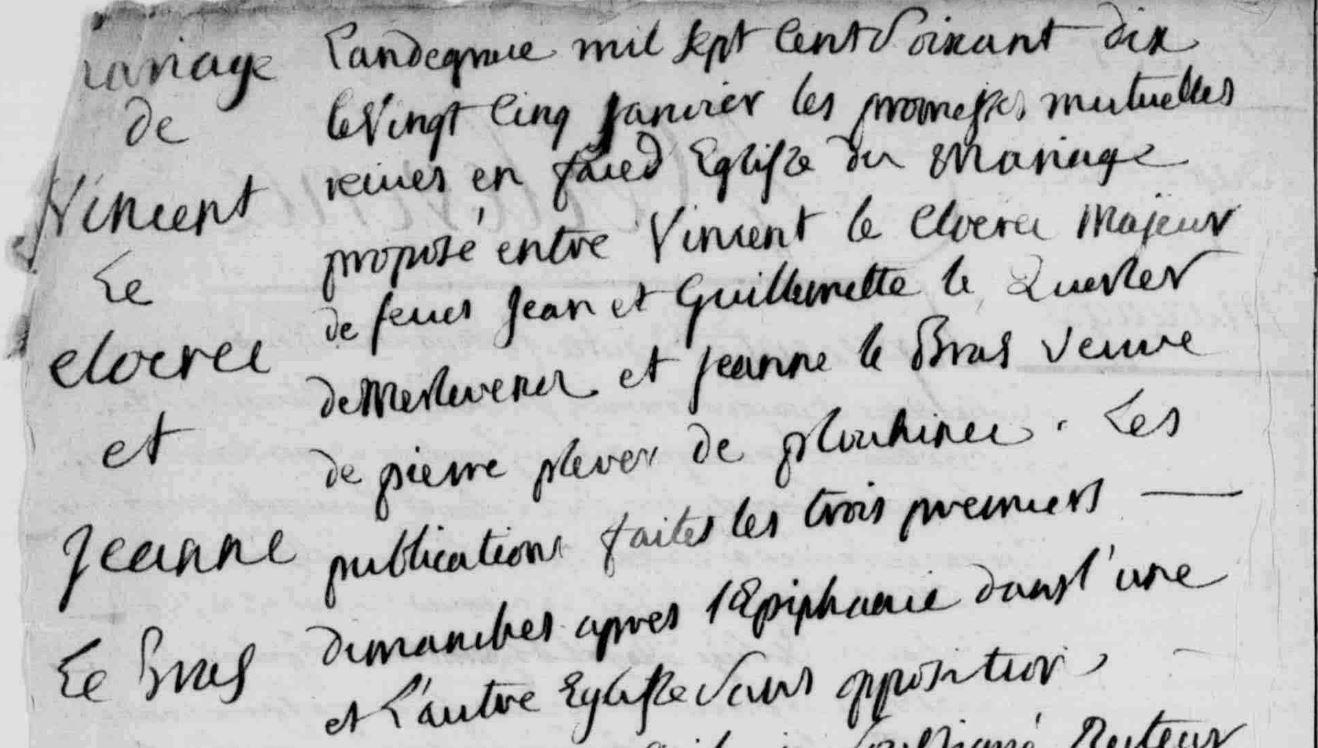 mariage
de
Vincent
Le
cloerec
et
Jeanne
Le Bras
L'an de grace mil sept cent soixant dix
le Vingt Cinq Janvier les promesses mutuelles
reçues en face d'Eglisse du Mariage
proposé entre Vincent le Cloerec Majeur
de feues Jean et Guillemette le Quester
de Merlevenez et Jeanne le Bras Veuve
de pierre plever de plouhinec. Les
publications faites les trois premiers
dimanches apres l'Epiphanie dans l'une
et L'autre Eglisse sans opposition
Recteur